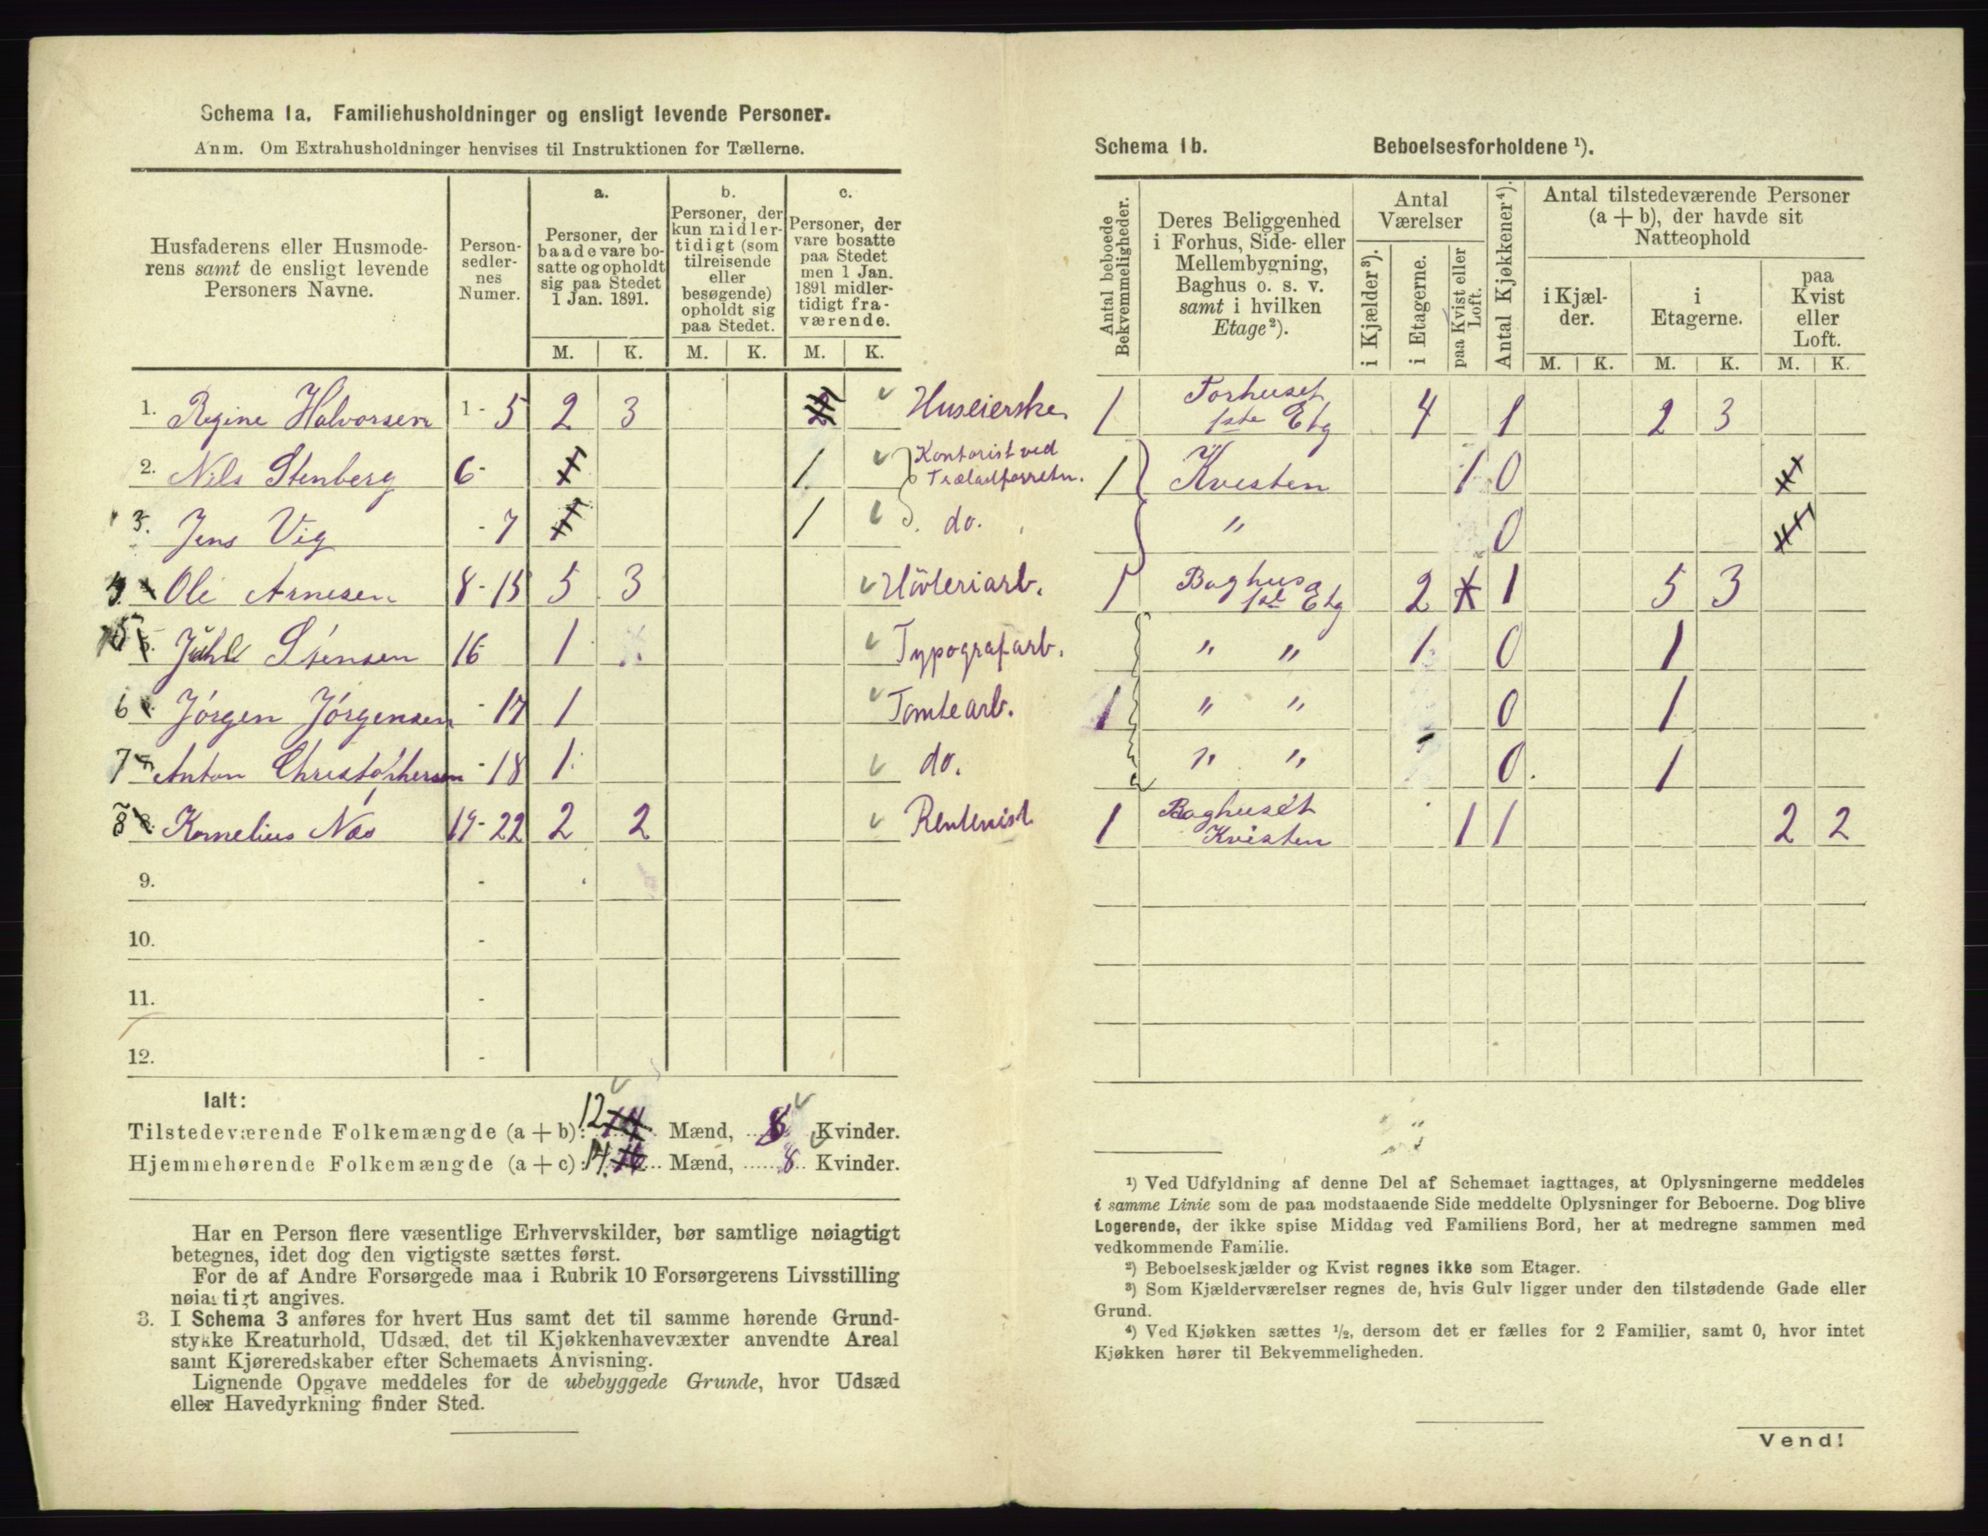 Schema 1a. Familiehusholdninger og ensligt levende Personer.
Anm. Om Extrahusholdninger henvises til Instruktionen for Tællerne.
Husfaderens eller Husmoderens samt de ensligt levende Personers Navne.
Personsedlernes Numer.
a. Personer, der baade vare bosatte og opholdt sig paa Stedet 1 Jan. 1891.
b. Personer, der kun midlertidigt (som tilreisende eller besøgende) opholdt sig paa Stedet.
c. Personer, der vare bosatte paa Stedet men 1 Jan. 1891 midlertidigt fraværende.
M. K. M. K. M. K.
1. Regine Halvorsen 1 - 5 2 3 Huseierske
2. Nils Stenberg 6 - 1 Kontorist ved Trælastforretn.
3. Jens Vig - 7 1 do.
4. Ole Arnesen 8 - 15 5 3 Høvleriarb.
5. Juhl Stensen 16 1 Typografarb.
6 Jørgen Jørgensen - 17 1 Tomtearb.
7 Anton Christophersen - 18 1 do.
8 Kornelius Næs 19 - 22 2 2 Rentenist
9. -
10. -
11. -
12. -
Ialt:
Tilstedeværende Folkemængde (a + b): 12 Mænd, 8 Kvinder.
Hjemmehørende Folkemængde (a + c): 14 Mænd, 8 Kvinder.
Har en Person flere væsentlige Erhvervskilder, bør samtlige nøiagtigt
betegnes, idet dog den vigtigste sættes først.
For de af Andre Forsørgede maa i Rubrik 10 Forsørgerens Livsstilling
nøiagtigt angives.
3. I Schema 3 anføres for hvert Hus samt det til samme hørende Grund-
stykke Kreaturhold, Udsæd, det til Kjøkkenhavevæxter anvendte Areal
samt Kjøreredskaber efter Schemaets Anvisning.
Lignende Opgave meddeles for de ubebyggede Grunde, hvor Udsæd
eller Havedyrkning finder Sted.
Schema 1b. Beboelsesforholdene ¹).
Antal beboede Bekvemmeligheder.
Deres Beliggenhed i Forhus, Side- eller Mellembygning, Baghus o. s. v. samt i hvilken Etage²).
Antal Værelser
i Kjælder³).
i Etagerne.
paa Kvist eller Loft.
Antal Kjøkkener⁴).
Antal tilstedeværende Personer (a + b), der havde sit Natteophold
i Kjælder.
i Etagerne.
paa Kvist eller Loft.
M. K. M. K. M. K.
1 Forhuset 1ste Etg 4 1 2 3
1 Kvisten 1 0
" 0
1 Baghus 1ste Etg 2 1 5 3
" " 1 0 1
1 " " 0 1
" " 0 1
1 Baghuset Kvisten 1 1 2 2
¹) Ved Udfyldning af denne Del af Schemaet iagttages, at Oplysningerne meddeles
i samme Linie som de paa modstaaende Side meddelte Oplysninger for Beboerne. Dog blive
Logerende, der ikke spise Middag ved Familiens Bord, her at medregne sammen med
vedkommende Familie.
²) Beboelseskjælder og Kvist regnes ikke som Etager.
³) Som Kjælderværelser regnes de, hvis Gulv ligger under den tilstødende Gade eller
Grund.
⁴) Ved Kjøkken sættes ¹/₂, dersom det er fælles for 2 Familier, samt 0, hvor intet
Kjøkken hører til Bekvemmeligheden.
Vend!